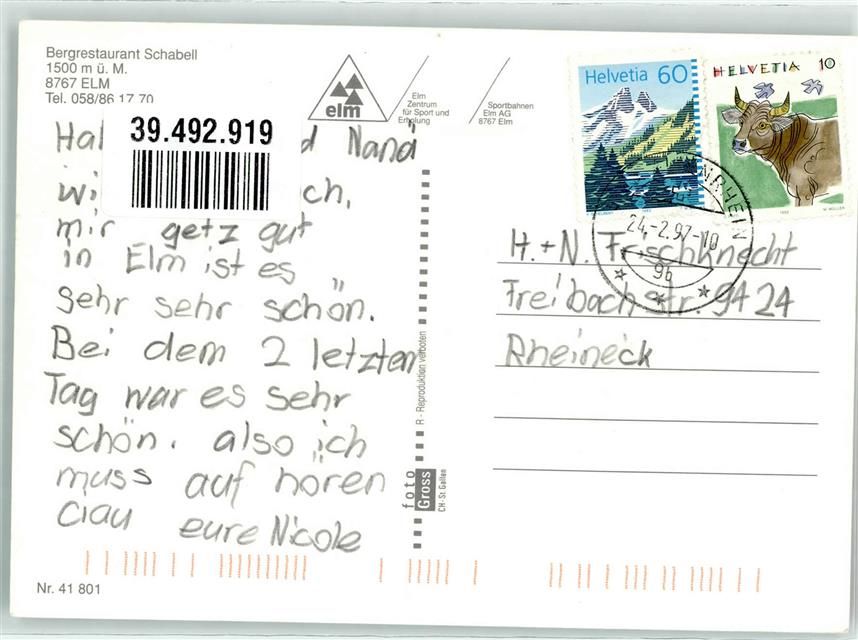 Bergrestaurant Schabell
1500 m ü. M.
8767 ELM
Tel. 058/86 17 70
elm
Elm
Zentrum
für Sport und
Erholung
Sportbahnen
Elm AG
8767 Elm
39.492.919
Hal d Nana
wi ch,
mir getz gut
in Elm ist es
sehr sehr schön.
Bei dem 2 letzten
Tag war es sehr
schön. also ich
muss auf hören
Ciau eure Nicole
Nr. 41 801
R - Reproduktion verboten
foto
Gross
CH-St. Gallen
Helvetia 60
HELVETIA 10
24.-2.97-10
H.+N. Frischknecht
Freibachstr. 9424
Rheineck